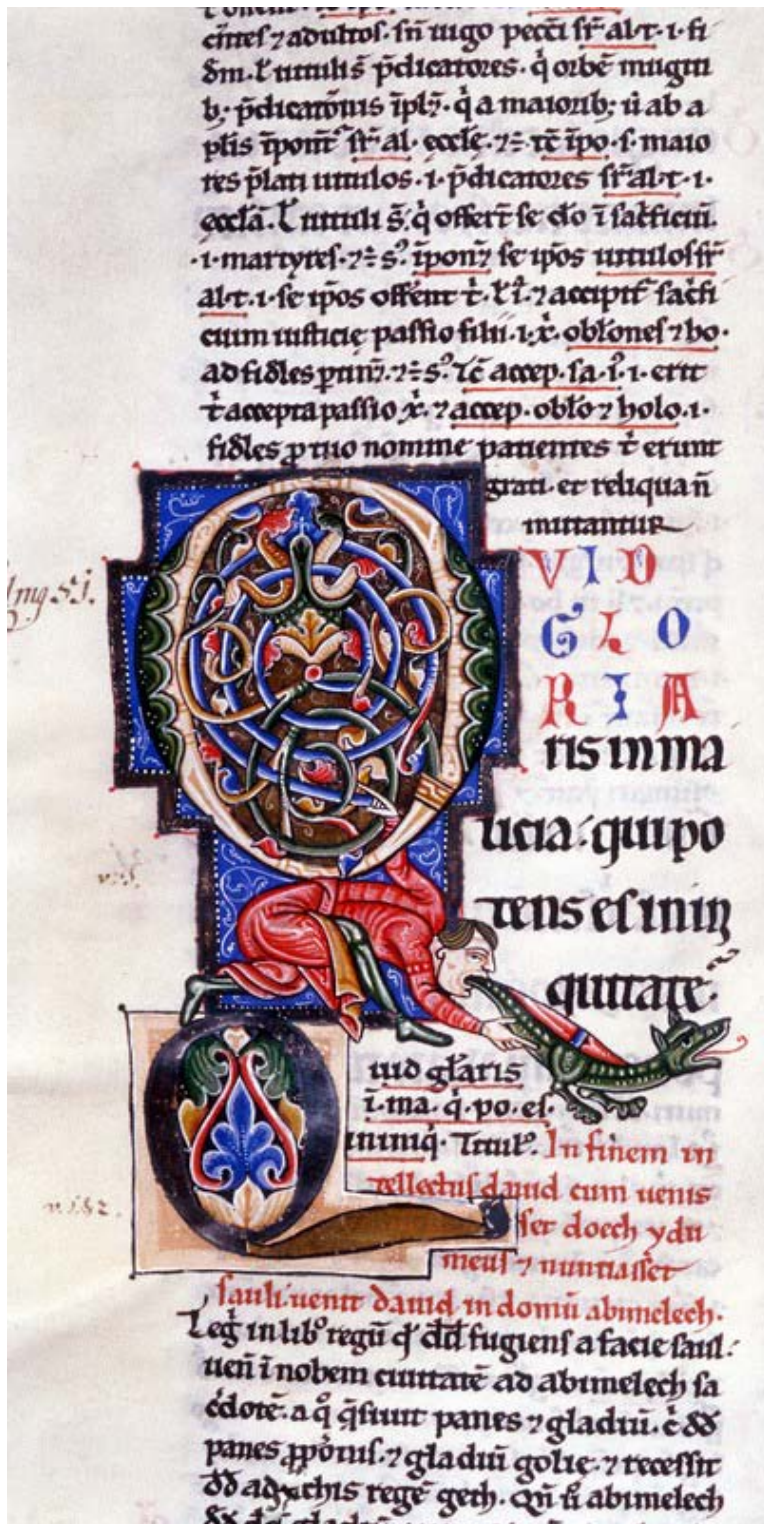 cıtıes ⁊ adultos. sn̄ iugo pecc̄i sr̄. al. t. i. fi
dm̄. ł uituli s̄ p̄dicatores. q̇ orbē mugiti
b; p̄dicationis īpl;. q̇ a maiorib; ł ab a
plis īponr̄ sr̄. al. eccłe. ⁊ ÷ tc̄ īpo. s. maio
res p̄lati uitulos. i. p̄dicatores sr̄. al. t. i.
eccłā. ł uituli s̄. q̇ offert se
.i. martyres. ⁊ ÷ s̊. īponr̄ se ip̄os uitulos sr̄
al. t. i. se ip̄os offerent t̄. ł i. ⁊ accipit̄ sac̊fi
cium iusticię passio filii. i. x̄. obłones ⁊ ho.
ad fidłes ptin̄. ⁊ ÷ s̊. Tc̄ accep. sa. i̊. i. erit
t̄ accepta passio x̄. ⁊ accep. obło ⁊ holo. i.
fidłes p tuo nomine patientes t̄ erunt
grati. et reliqua ñ
mutantur
QVID
GLO
RIA
ris in ma
licia. qui po
tens es in in
quitate.
Quid głaris
ī. ma. q̇. po. es
in iniq̇. Titulꝰ. In finem in
tellectus dauid cum uenis
set doech ydu
meus ⁊ nuntiasset
sauli. uenit dauid in domū abimelech.
Leg̊ in lib̊ regū q̇ dd̄ fugiens a facie saul.
uen̄ ī nobem ciuitatē ad abimelech sa
c̊dotē. a q̊ q̄siuit panes ⁊ gladiū. 
panes ppōnis. ⁊ gladiū golie. ⁊ recessit
dd̄ ad achis regē geth. Qn̄ abimelech